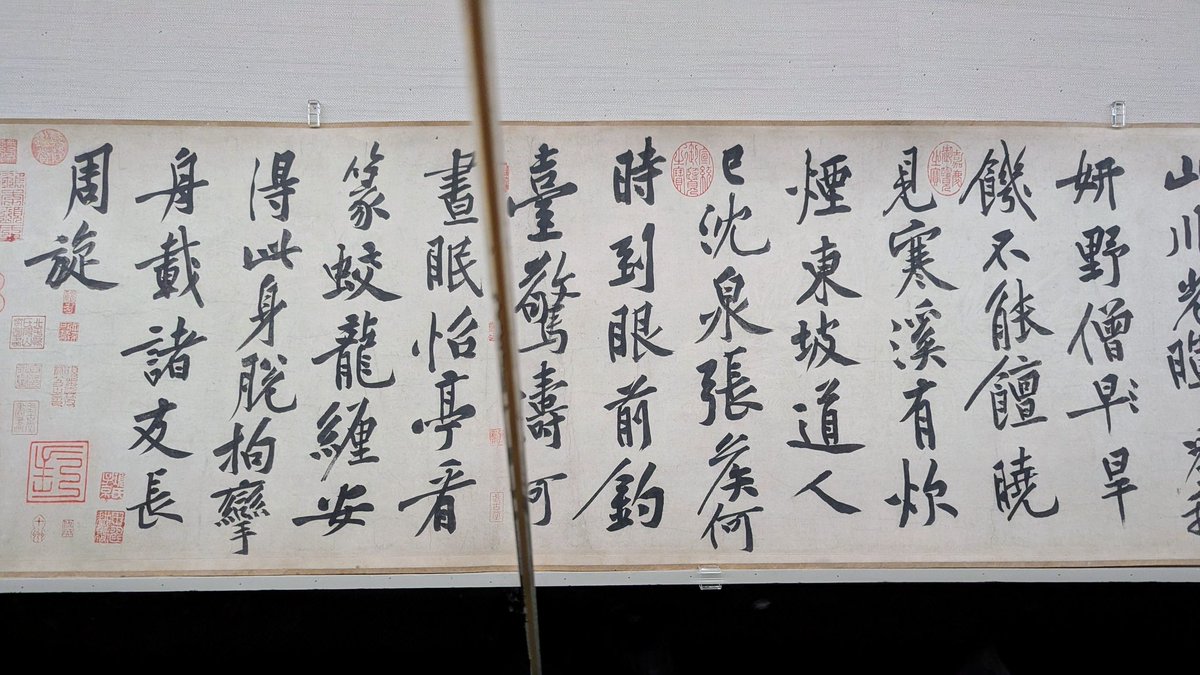 山川光暉
妍野僧早旱
饑不能饘曉
見寒溪有炊
煙東坡道人
已沈泉張侯何
時到眼前釣
臺驚濤可
晝眠怡亭看
篆蛟龍纏安
得此身脫拘攣
舟載諸友長
周旋